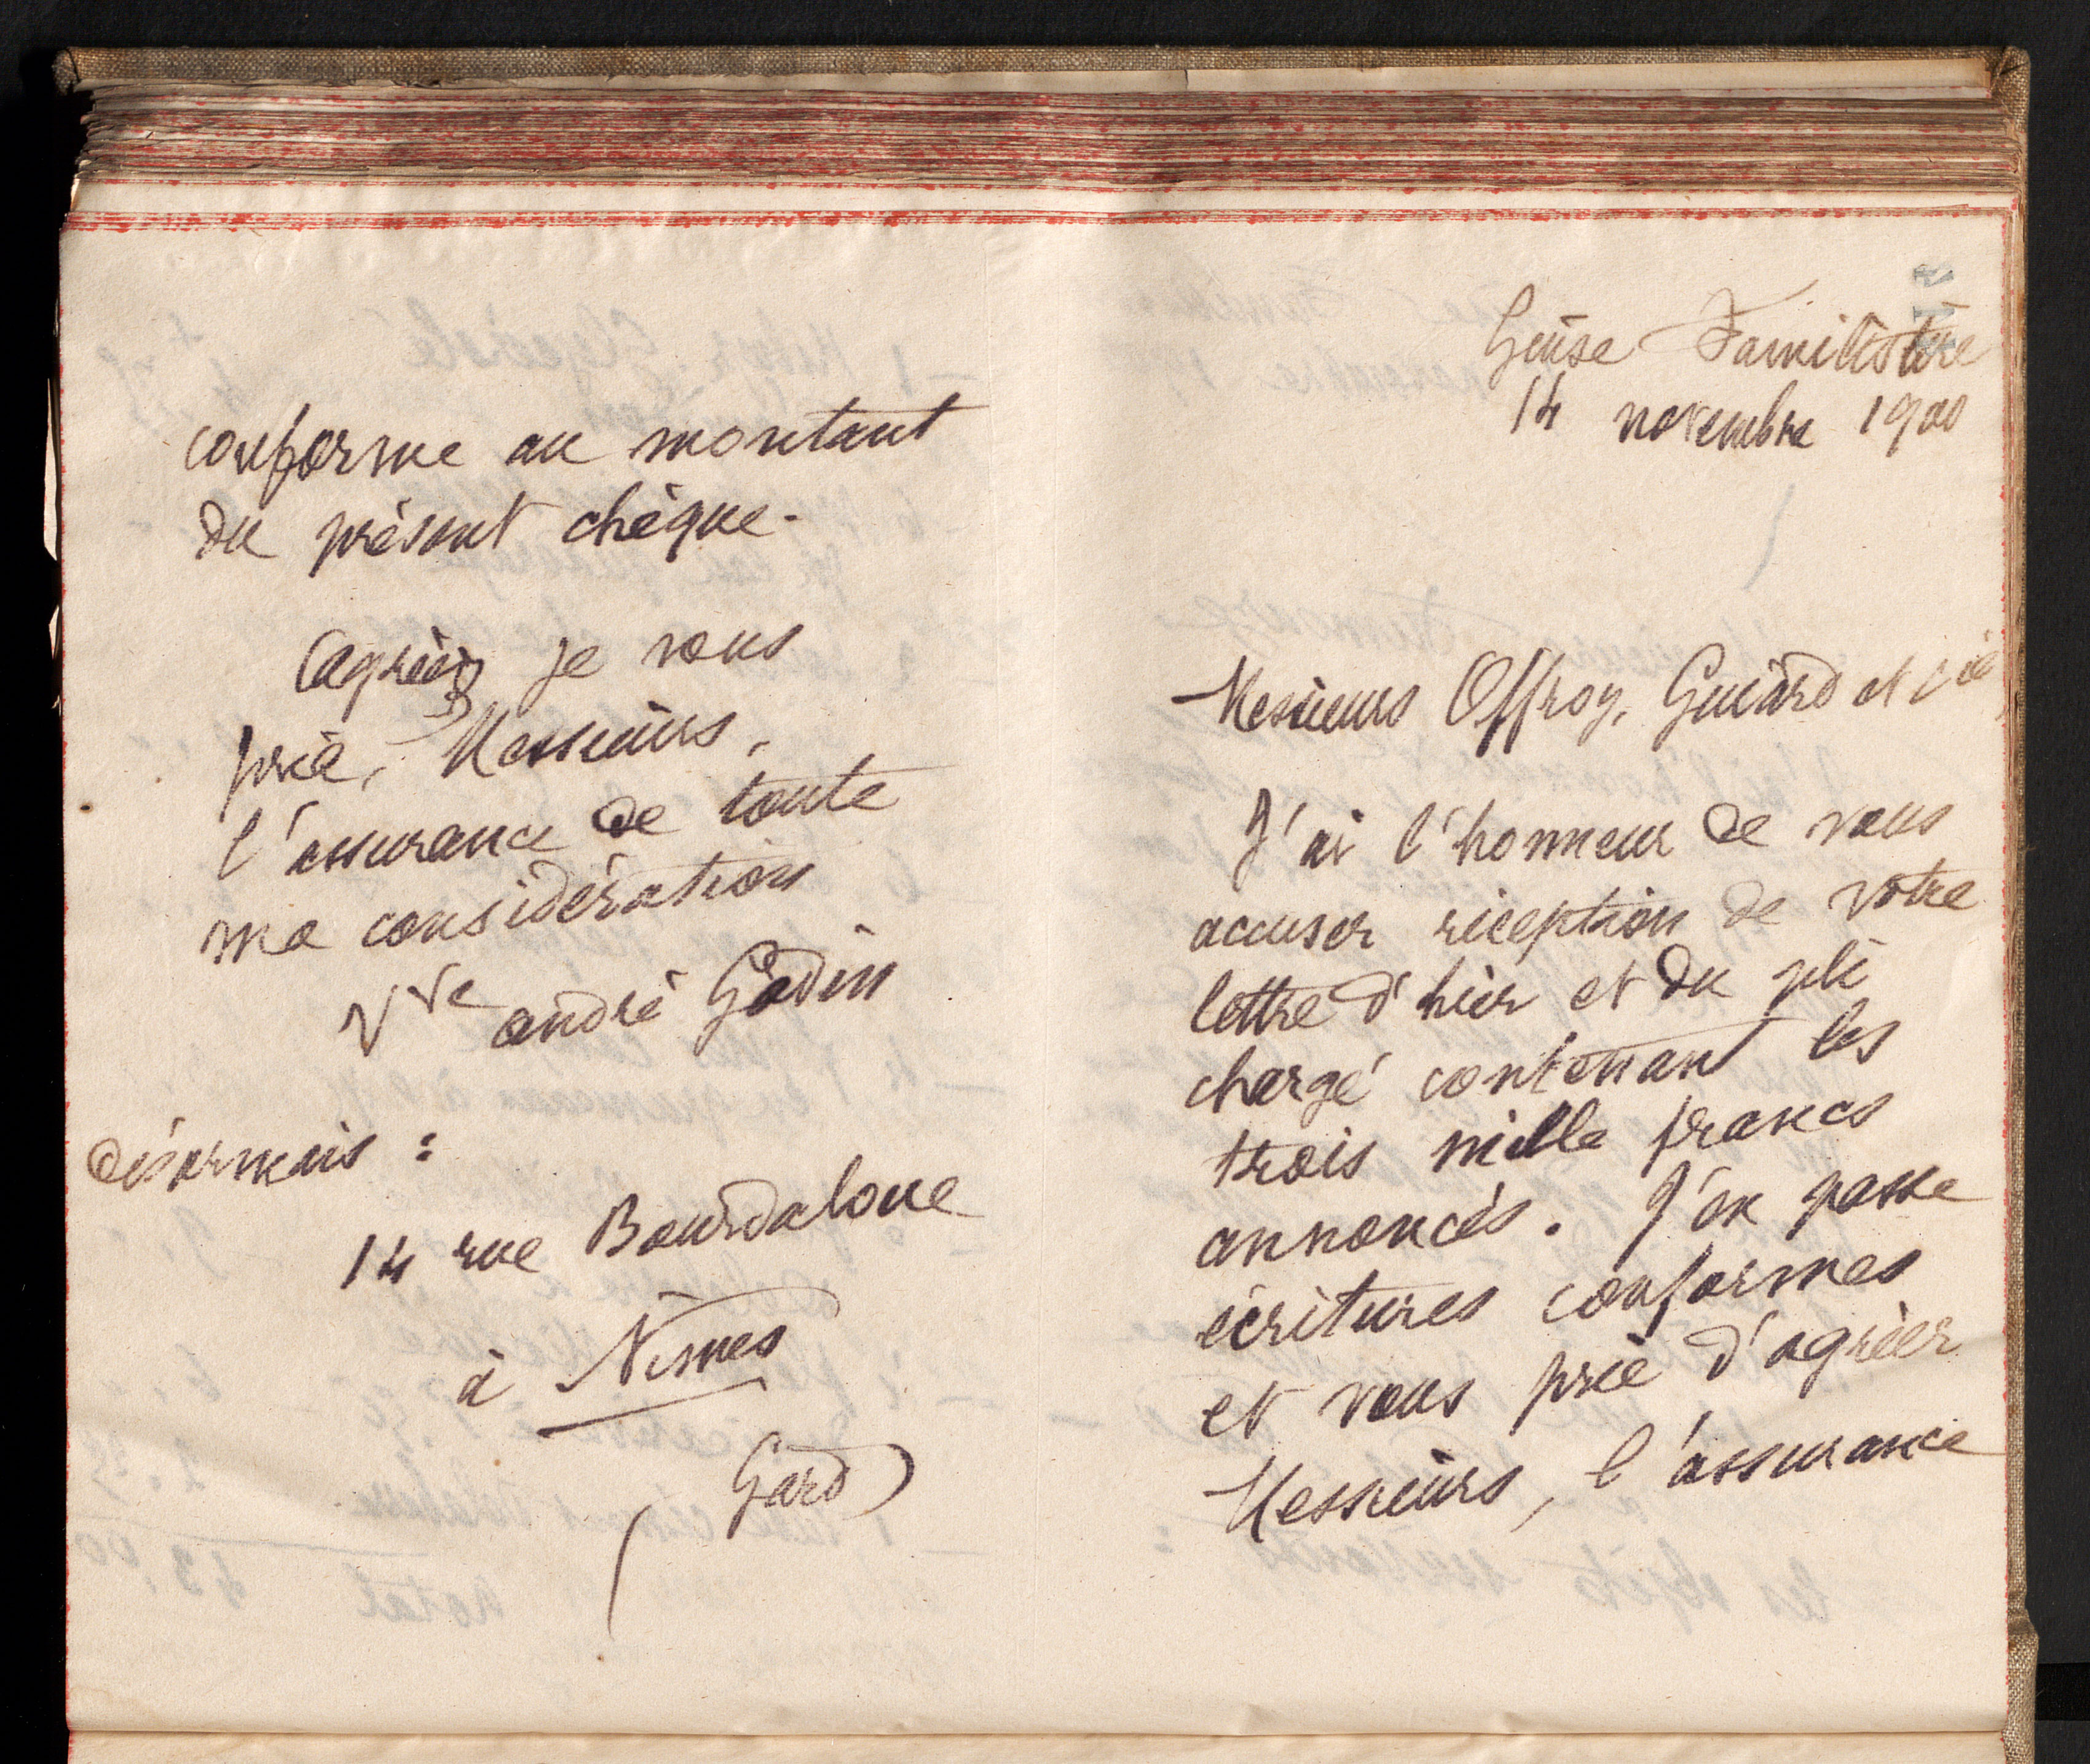 Guise Familistère
14 novembre 1900
Messieurs Offroy, Guiard et Cie
J'ai l'honneur de vous
accuser réception de votre
lettre d'hier et du pli
chargé contenant les
trois mille francs
annoncés. J'en passe
écritures conformes
et vous prie d'agréer
Messieurs, l'assurance
conforme au montant
du présent chèque.
Agréez je vous
prie, Messieurs,
l'assurance de toute
ma considération
Vve André Godin
désormais :
14 rue Bourdaloue
à Nîmes
(Gard)